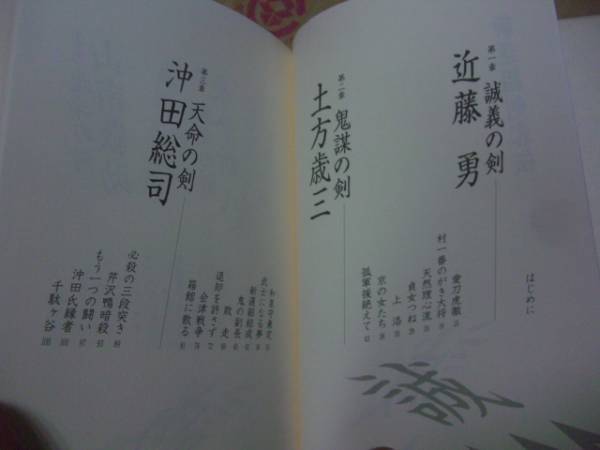 はじめに
第一章 誠義の剣
近藤 勇
愛刀虎徹
村一番のがき大将
天然理心流
貞女つね
上洛
京の女たち
孤軍援絶えて
第二章 鬼謀の剣
土方歳三
和泉守兼定
武士になる夢
新選組結成
鬼の副長
敗走
退却を許さず
会津戦争
箱館に散る
第三章 天命の剣
沖田総司
必殺の三段突き
芹沢鴨暗殺
もう一つの闘い
沖田氏縁者
千駄ヶ谷
誠